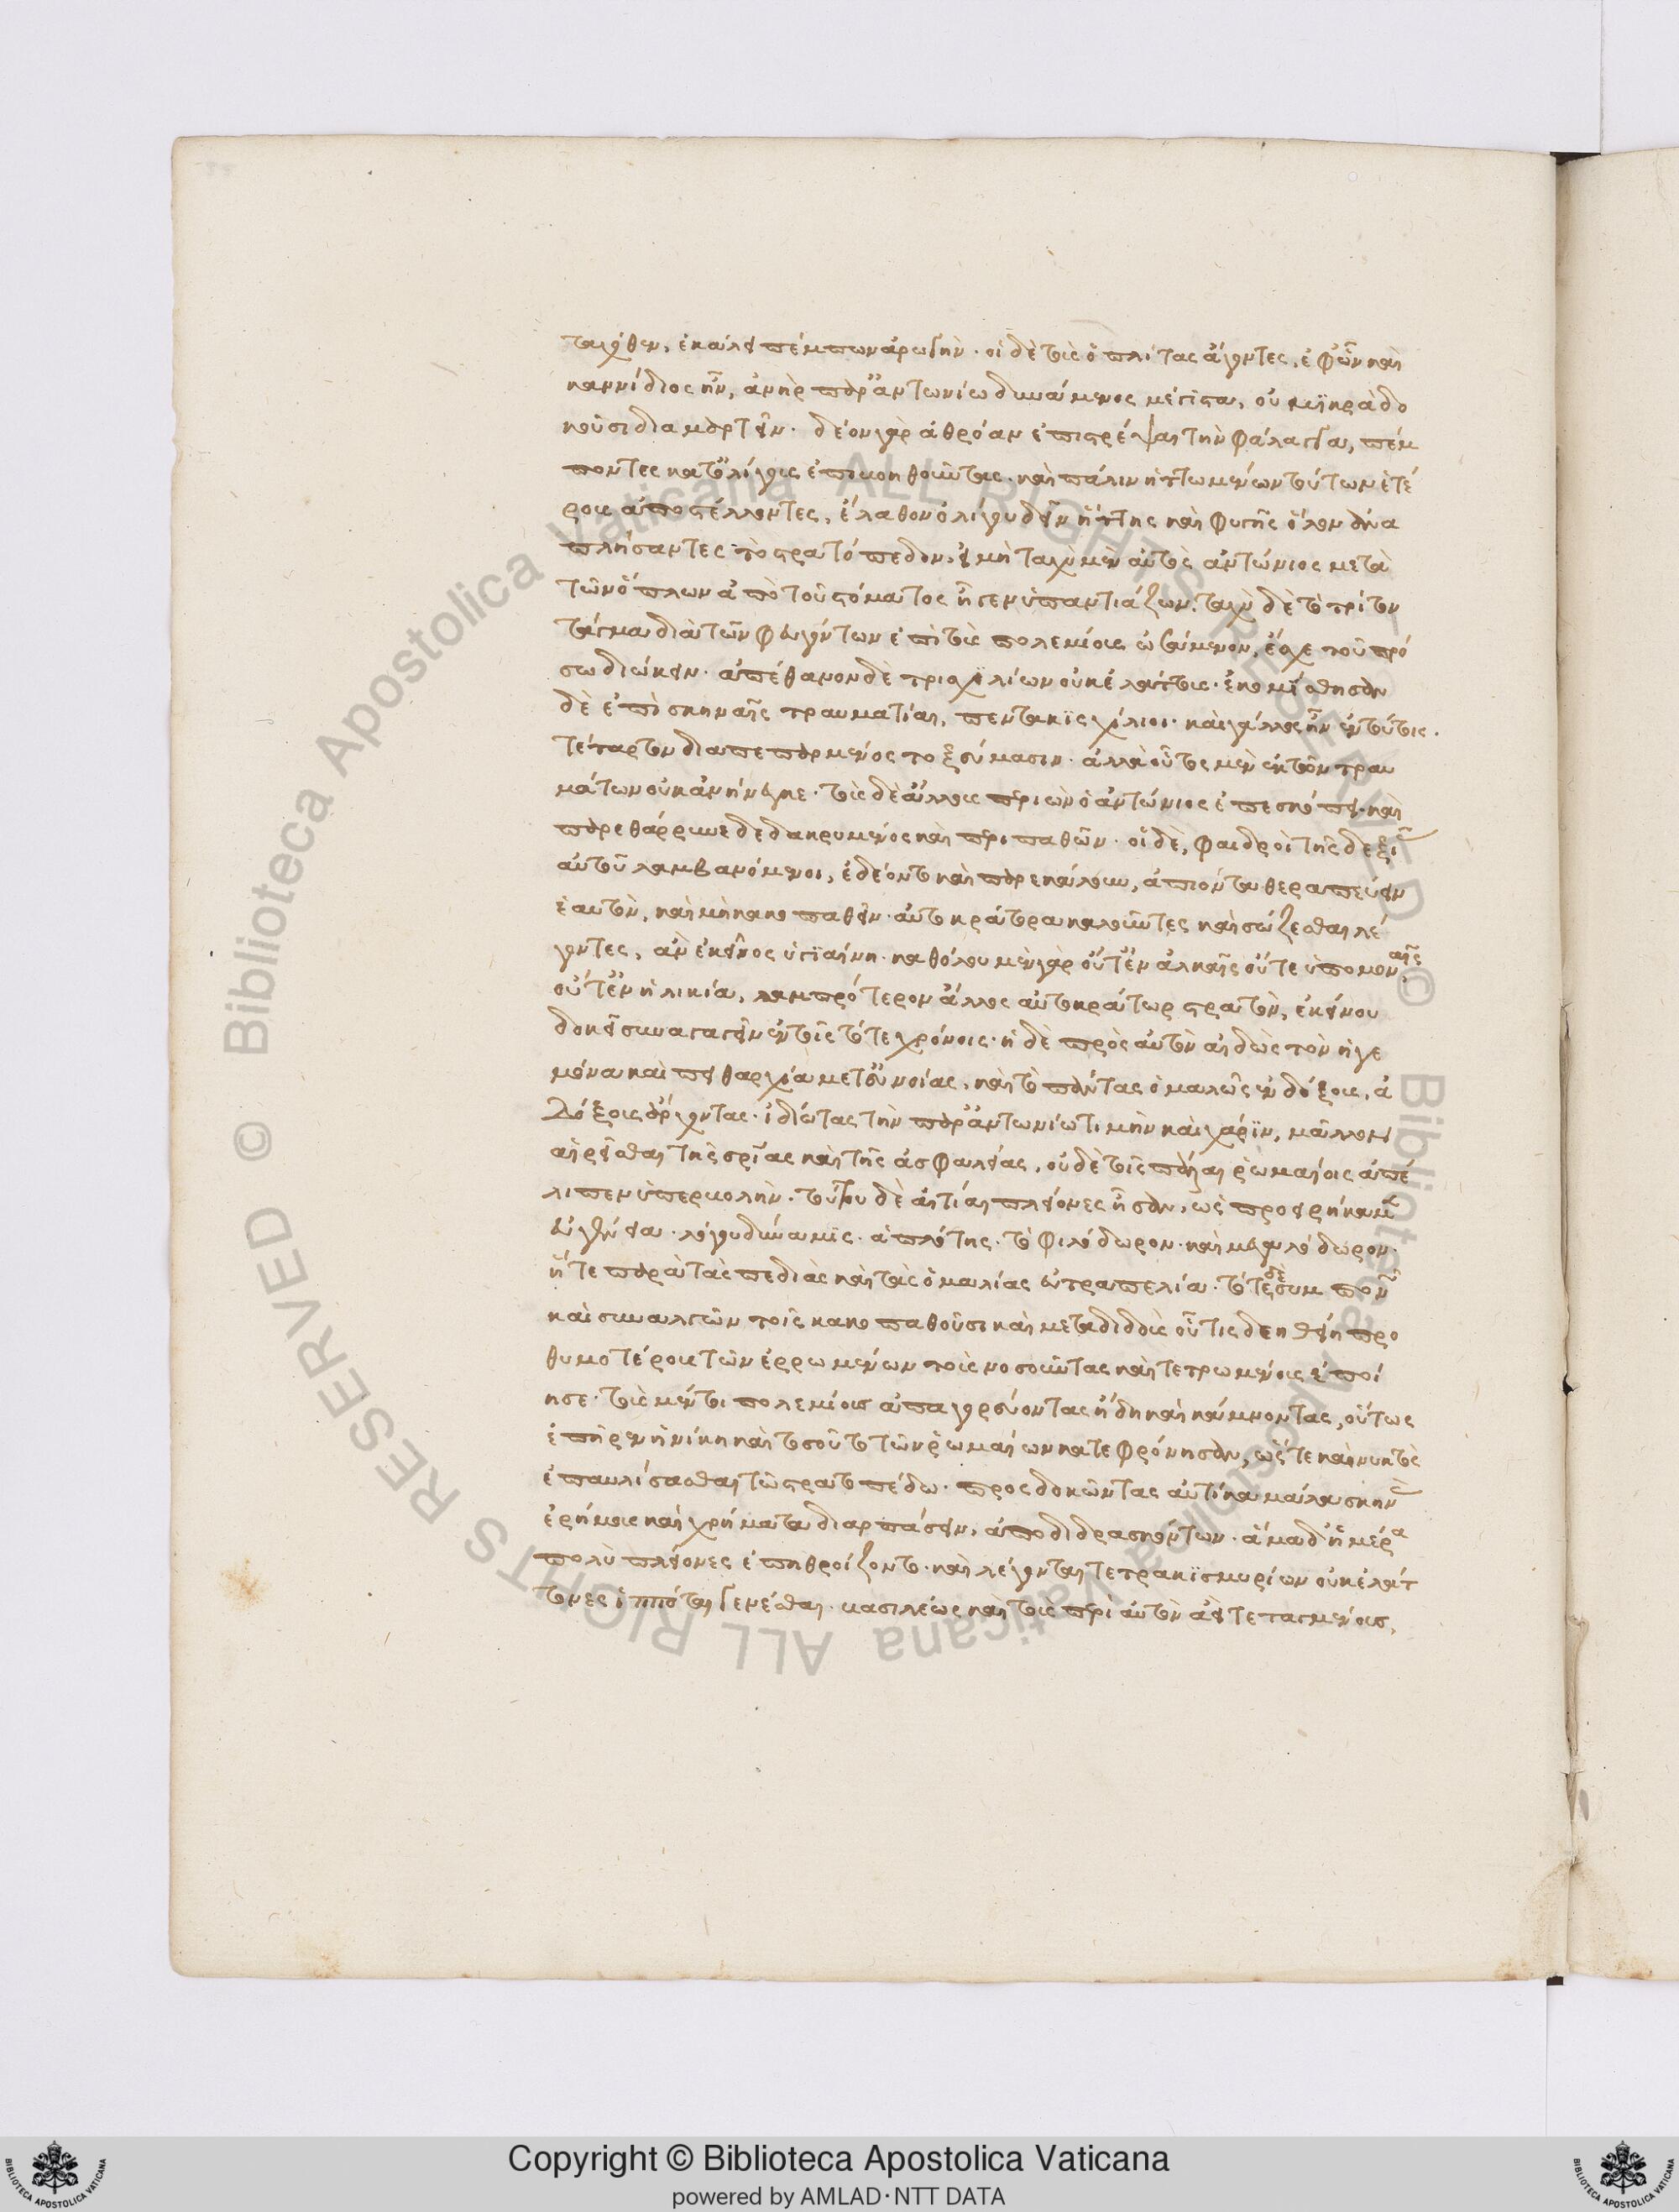 ταχόθεν, ἐκάλει πέμπων ἀρωγήν. οἱ δὲ τοὺς ὁπλίτας ἄγοντες, ἐφ' ὧν καὶ
κανίδιος ἦν, ἀνὴρ παρ' ἀντωνίω δυνάμενος μέγιστα, οὐ μικρὰ δο
κοῦσι διαμαρτεῖν. δέον γὰρ ἀθρόαν ἐπιστρέψαι τὴν φάλαγγα, πέμ
ποντες κατ' ὀλίγους ἐπὶ βοηθοῦντας. καὶ πάλιν ἡττωμένων τούτων ἑτέ
ρους ἀποστέλλοντες, ἔλαθον ὀλίγου δεῖν ἥττης καὶ φυγῆς ὅλον ἀνα
πλήσαντες τὸ στρατόπεδον, εἰ μὴ ταχὺ μὲν αὐτὸς ἀντώνιος μετὰ
τῶν ὅπλων ἀπὸ τοῦ στόματος ἧκεν ὑπαντιάζων. ταχὺ δὲ τὸ τρίτον
τάγμα διὰ τῶν φευγόντων ἐπὶ τοὺς πολεμίους ὠσάμενον, ἔσχε τοῦ πρό
σω διώκειν. ἀπέθανον δὲ τρισχιλίων οὐκ ἐλάττους. ἐκομίσθησαν
δὲ ἐπὶ σκηνὰς τραυματίαι, πεντακισχίλιοι. καὶ γάλλος ἦν ἐν τούτοις.
τέταρτον διαπεπαρμένος τοξεύμασιν. ἀλλ' οὗτος μὲν ἐκ τῶν τραυ
μάτων οὐκ ἀνήνεγκε. τοὺς δὲ ἄλλους περιιὼν ὁ ἀντώνιος ἐπεσκόπει καὶ
παρεθάρρυνε δεδακρυμένος καὶ περιπαθῶν. οἱ δὲ, φαιδροὶ τῆς δεξιᾶς
αὐτοῦ λαμβανόμενοι, ἐδέοντο καὶ παρεκάλουν, ἀπιόντα θεραπεύειν
ἑαυτὸν, καὶ μὴ κακοπαθεῖν. αὐτοκράτορα καλοῦντες καὶ σώζεσθαι λέ
γοντες, ἂν ἐκεῖνος ὑγιαίνη. καθόλου μὲν γὰρ οὔτ' ἐν ἀλκαῖς οὔτε ὑπομοναῖς,
οὔτ' ἐν ἡλικία, λαμπρότερον ἄλλος αὐτοκράτωρ στρατὸν, ἐκείνου
δοκεῖ συναγαγεῖν ἐν τοῖς τότε χρόνοις. ἡ δὲ πρὸς αὐτὸν αἰδὼς τὸν ἡγε
μόνα καὶ πειθαρχία μετ' εὐνοίας, καὶ τὸ πάντας ὁμαλῶς ἐνδόξους, ἀ
δόξους ἄρχοντας. ἰδιώτας τὴν παρ' ἀντωνίω τιμὴν καὶ χάριν, μᾶλλον
αἱρεῖσθαι τῆς σωτηρίας καὶ τῆς ἀσφαλείας, οὐδὲ τοῖς πάλαι ῥωμαίοις ἀπέ
λιπεν ὑπερβολήν. τούτου δὲ αἰτίαι πλείονες ἦσαν, ὡς προειρήκαμεν
εὐγένεια. λόγου δύναμις. ἁπλότης. τὸ φιλόδωρον. καὶ μεγαλόδωρον.
ἥ τε παρὰ τὰς παιδιὰς καὶ τὰς ὁμιλίας εὐτραπελία. τότε δὲ συμπονῶν
καὶ συναλγῶν τοῖς κακοπαθοῦσι καὶ μεταδιδοὺς οὗ τις δεηθείη προ
θυμοτέρους τῶν ἐρρωμένων τοὺς νοσοῦντας καὶ τετρωμένους ἐποί
ησε. τοὺς μέντοι πολεμίους ἀπαγορεύοντας ἤδη καὶ κάμνοντας, οὕτως
ἐπῆρεν ἡ νίκη καὶ τοσοῦτο τῶν ῥωμαίων κατεφρόνησαν, ὥστε καὶ νυκτὸς
ἐπαυλίσασθαι τῶ στρατοπέδω. προσδοκῶντας αὐτίκα μάλα σκηνὰς
ἐρήμους καὶ χρήματα διαρπάσειν, ἀποδιδρασκόντων. ἅμα δ' ἡμέρα
πολὺ πλείονες ἐπηθροίζοντο. καὶ λέγονται τετρακισμυρίων οὐκ ἐλάτ
τονες ἱππόται γενέσθαι. βασιλέως καὶ τοὺς περὶ αὐτὸν ἀεὶ τεταγμένους,